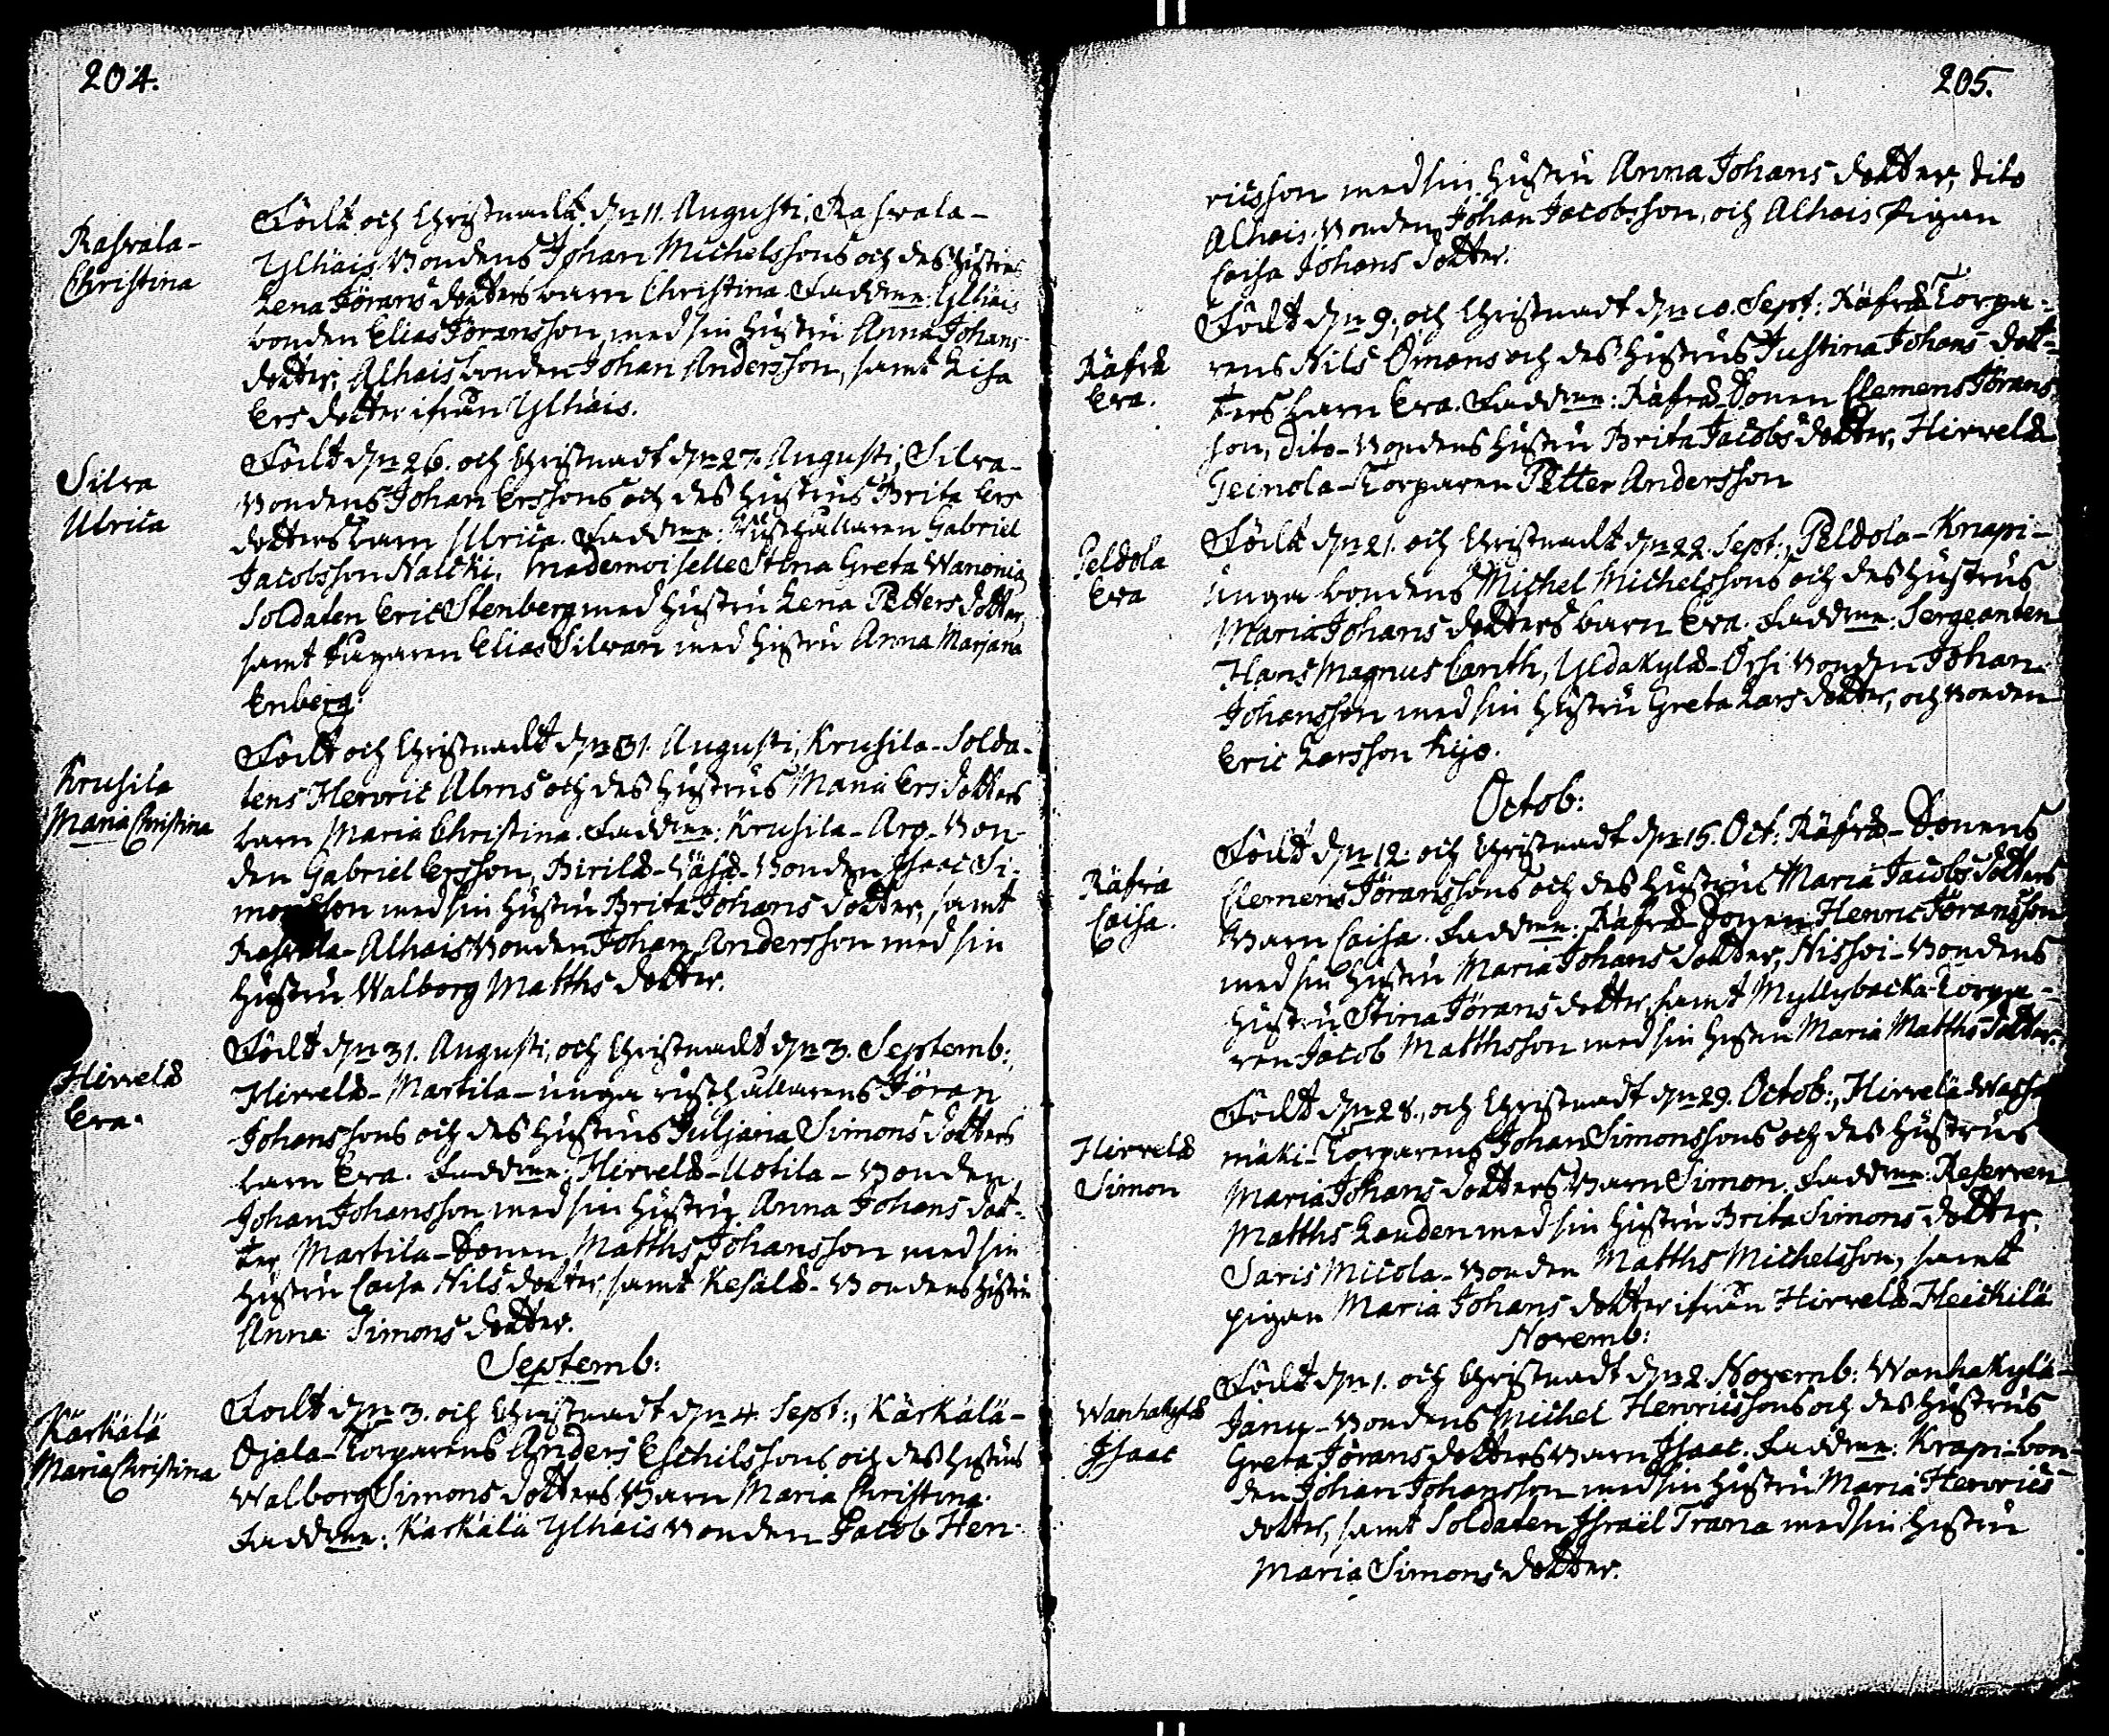 204.
Rasvala-
Christina
Född och Christnadt, d: 11. Augusti, Rasvala-
Ylhäis Bondens Johan Michelssons och des hustrus
Lena Jörans dotters barn Christina. Faddrar: Ylhäis
bonden Elias Jöransson, med sin hustru Anna Johans
dotter, Alhais bonden Johan Andersson, samt Lisa
Ers dotter ifrån Ylhäis.
Silva
Ulrica
Född d: 26. och Christnadt d: 27. Augusti, Silva-
Bondens Johan Erssons och des hustrus Brita Ers
dotters barn Ulrica. Faddrar: Rusthållaren Gabriel
Jacobsson Nalcki, Mademoiselle Stina Greta Wanonia,
Soldaten Eric Stenberg med hustru Lena Petters dotter,
samt Elias Silvan med hustru Anna Marjana
Enberg.
Krusila
Maria Christina
Född och Christnadt d: 31. Augusti, Krusila-Solda-
tens Henric Alms och des hustrus Maria Ers dotters
barn Maria Christina. Faddrar: Krusila-Arg-Bon-
den Gabriel Ersson, Birilä- Bonden Isaac Si-
monsson med sin hustru Brita Johans dotter, samt
Rasvala-Alhais Bonden Johan Andersson med sin
hustru Walborg Matths dotter.
Hirvelä
Eva.
Född d: 31. Augusti, och Christnadt d: 3. Septemb:,
Hirvelä-Martila-unga rusthållarens Jöran
Johanssons och des hustrus Juljana Simons dotters
barn Eva. Faddrar: Hirvelä-Uotila-Bonden,
Johan Johansson med sin hustru Anna Johans dot-
ter, Martila-Sonen Matths Johansson med sin
hustru Caisa Nils dotter, samt Kesälä-Bondens hustru
Anna Simons dotter.
Septemb:
Kärkälä
Maria Christina
Född d: 3. och Christnadt d: 4. Sept:, Kärkälä-
Ojala-Torparens Anders Eschilssons och des hustrus
Walborg Simons dotters Barn Maria Christina.
Faddrar: Kärkälä Ylhäis Bonden Jacob Hen-
205.
ricsson med sin hustru Anna Johans dotter, dito
Alhais Bonden Johan Jacobsson, och Alhais pigan
Caisa Johans dotter.
Räfvä
Eva.
Född d: 9., och Christnadt d: 10. Sept: Räfvä Torpa-
rens Nils Ömans och des hustrus Justina Johans dot-
ters barn Eva. Faddrar: Räfvä-Sonen Clemens Jörans-
son, dito-Bondens hustru Brita Jacobs dotter, Hirvelä
Teinola-Torparen Petter Andersson
Peldola
Eva
Född d: 21. och Christnadt d: 22. Sept:, Peldola-Knapi-
unga bondens Michel Michelssons och des hustrus
Maria Johans dotters barn Eva. Faddrar: Sergeanten
Hans Magnus Canth, Yldakylä-Orsi Bonden Johan
Johansson med sin hustru Greta Lars dotter, och Bonden
Eric Larsson Kijs.
Octob:
Räfvä
Caisa.
Född d: 12. och Christnadt d: 15. Oct: Räfvä-Sonens
Clemens Jöranssons och des hustrus Maria Jacobs dotters
Barn Caisa. Faddrar: Räfvä-Sonen Henric Jöransson
med sin hustru Maria Johans dotter, Nissoi-Bondens
hustru Stina Jörans dotter, samt Myllybacka-Torpa-
ren Jacob Matthsson med sin hustru Maria Matths dotter.
Hirvelä
Simon
Född d: 28., och Christnadt d: 29. Octob:, Hirvelä-
mäki-Torparens Johan Simonssons och des hustrus
Maria Johans dotters Barn Simon. Faddrar: Reserven
Matths Landen med sin hustru Brita Simons dotter,
Saris Micola-Bonden Matths Michelsson, samt
pigan Maria Johans dotter ifrån Hirvelä Heickilä.
Novemb:
Wanhakylä
Isaac
Född d: 1. och Christnadt d: 2. Novemb: Wanhakylä-
Janu-Bondens Michel Henricssons och des hustrus
Greta Jörans dotters Barn Isaac. Faddrar: Krapi-bon-
den Johan Johansson med sin hustru Maria Henrics
dotter, samt Soldaten Israël Trana med sin hustru
Maria Simons dotter.